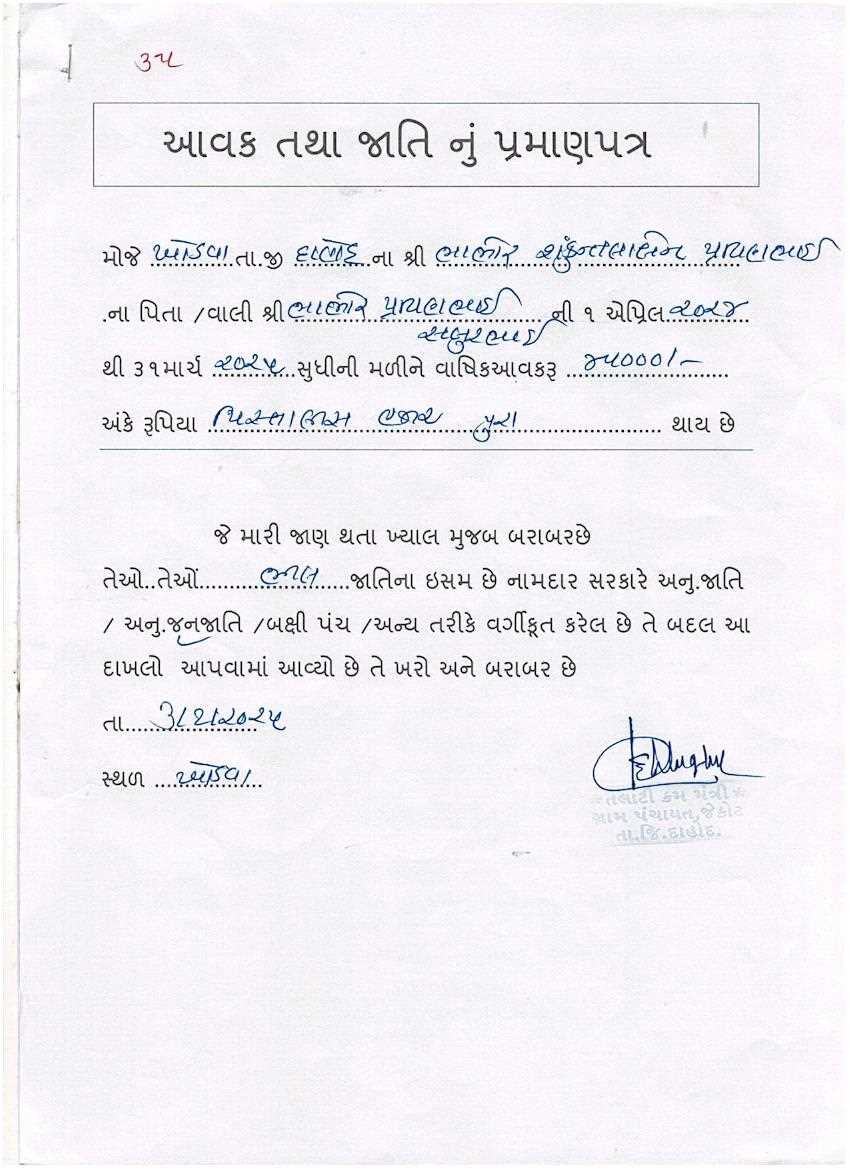 ૩૫
આવક તથા જાતિ નું પ્રમાણપત્ર
મોજે ખોડવા તા.જી દાહોદ ના શ્રી ભાભોર શકુંન્તલાબેન પ્રતાપભાઈ
.ના પિતા /વાલી શ્રી ભાભોર પ્રતાપભાઈ ની ૧ એપ્રિલ ૨૦૨૪
થી ૩૧માર્ચ ૨૦૨૫ સુધીની મળીને વાષિકઆવકરૂ ૪૫૦૦૦/-
અંકે રૂપિયા પિસ્તાલીસ હજાર પુરા થાય છે
જે મારી જાણ થતા ખ્યાલ મુજબ બરાબરછે
તેઓ..તેઓં ભીલ જાતિના ઇસમ છે નામદાર સરકારે અનુ.જાતિ
/ અનુ.જનજાતિ /બક્ષી પંચ /અન્ય તરીકે વર્ગીકૃત કરેલ છે તે બદલ આ
દાખલો આપવામાં આવ્યો છે તે ખરો અને બરાબર છે
તા ૩/૨/૨૦૨૫
સ્થળ ખોડવા
તલાટી કમ મંત્રી
ગ્રામ પંચાયત,જેકોટ
તા.જિ.દાહોદ.